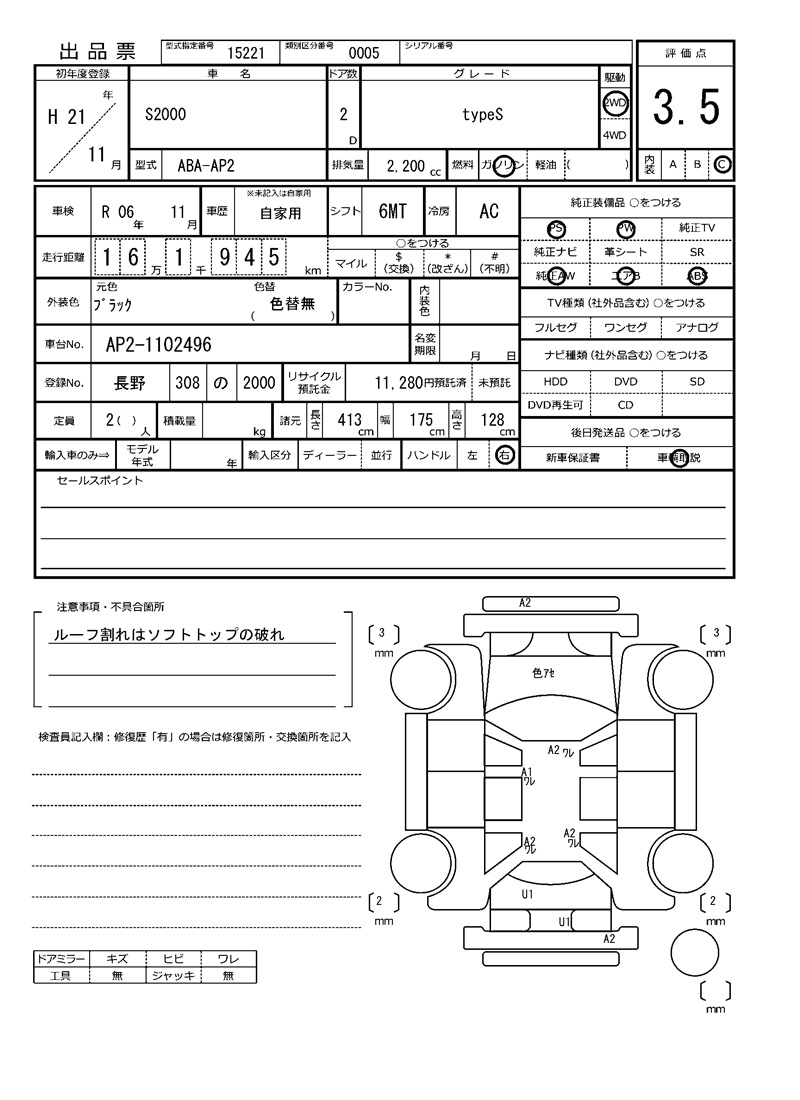 出品票 型式指定番号 15221 類別区分番号 0005 シリアル番号
評価点
初年度登録 車名 ドア数 グレード 駆動
H 21 年 11 月 S2000 2 D typeS 2WD 4WD
3.5
型式 ABA-AP2 排気量 2,200 cc 燃料 ガソリン 軽油 ( )
内装 A B C
車検 R 06 年 11 月 車歴 ※未記入は自家用 自家用 シフト 6MT 冷房 AC
純正装備品 ○をつける
PS PW 純正TV
純正ナビ 革シート SR
純正AW エアB ABS
走行距離 1 6 万 1 千 9 4 5 km
○をつける
マイル $ (交換) * (改ざん) # (不明)
外装色 元色 ブラック 色替 ( 色替無 ) カラーNo. 内装色
TV種類 (社外品含む) ○をつける
フルセグ ワンセグ アナログ
車台No. AP2-1102496 名変期限 月 日
ナビ種類 (社外品含む) ○をつける
HDD DVD SD
DVD再生可 CD
登録No. 長野 308 の 2000 リサイクル預託金 11,280円預託済 未預託
定員 2 ( ) 人 積載量 kg 諸元 長さ 413 cm 幅 175 cm 高さ 128 cm
後日発送品 ○をつける
新車保証書 車輌取説
輸入車のみ⇒ モデル年式 年 輸入区分 ディーラー 並行 ハンドル 左 右
セールスポイント
注意事項・不具合箇所
ルーフ割れはソフトトップの破れ
検査員記入欄：修復歴「有」の場合は修復箇所・交換箇所を記入
ドアミラー キズ ヒビ ワレ
工具 無 ジャッキ 無
A2
3 mm
3 mm
色アセ
A2 ワレ
A1 ワレ
A2 ワレ
A2 ワレ
U1
U1
A2
2 mm
2 mm
mm